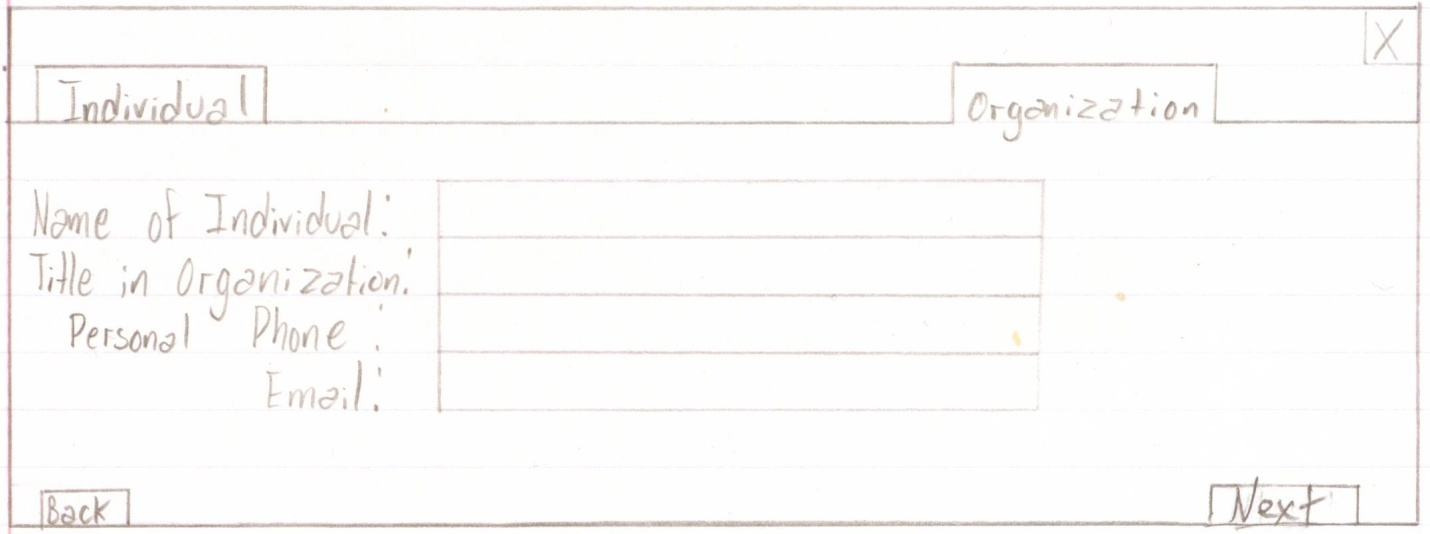 X
Individual Organization
Name of Individual:
Title in Organization:
Personal Phone :
Email:
Back Next